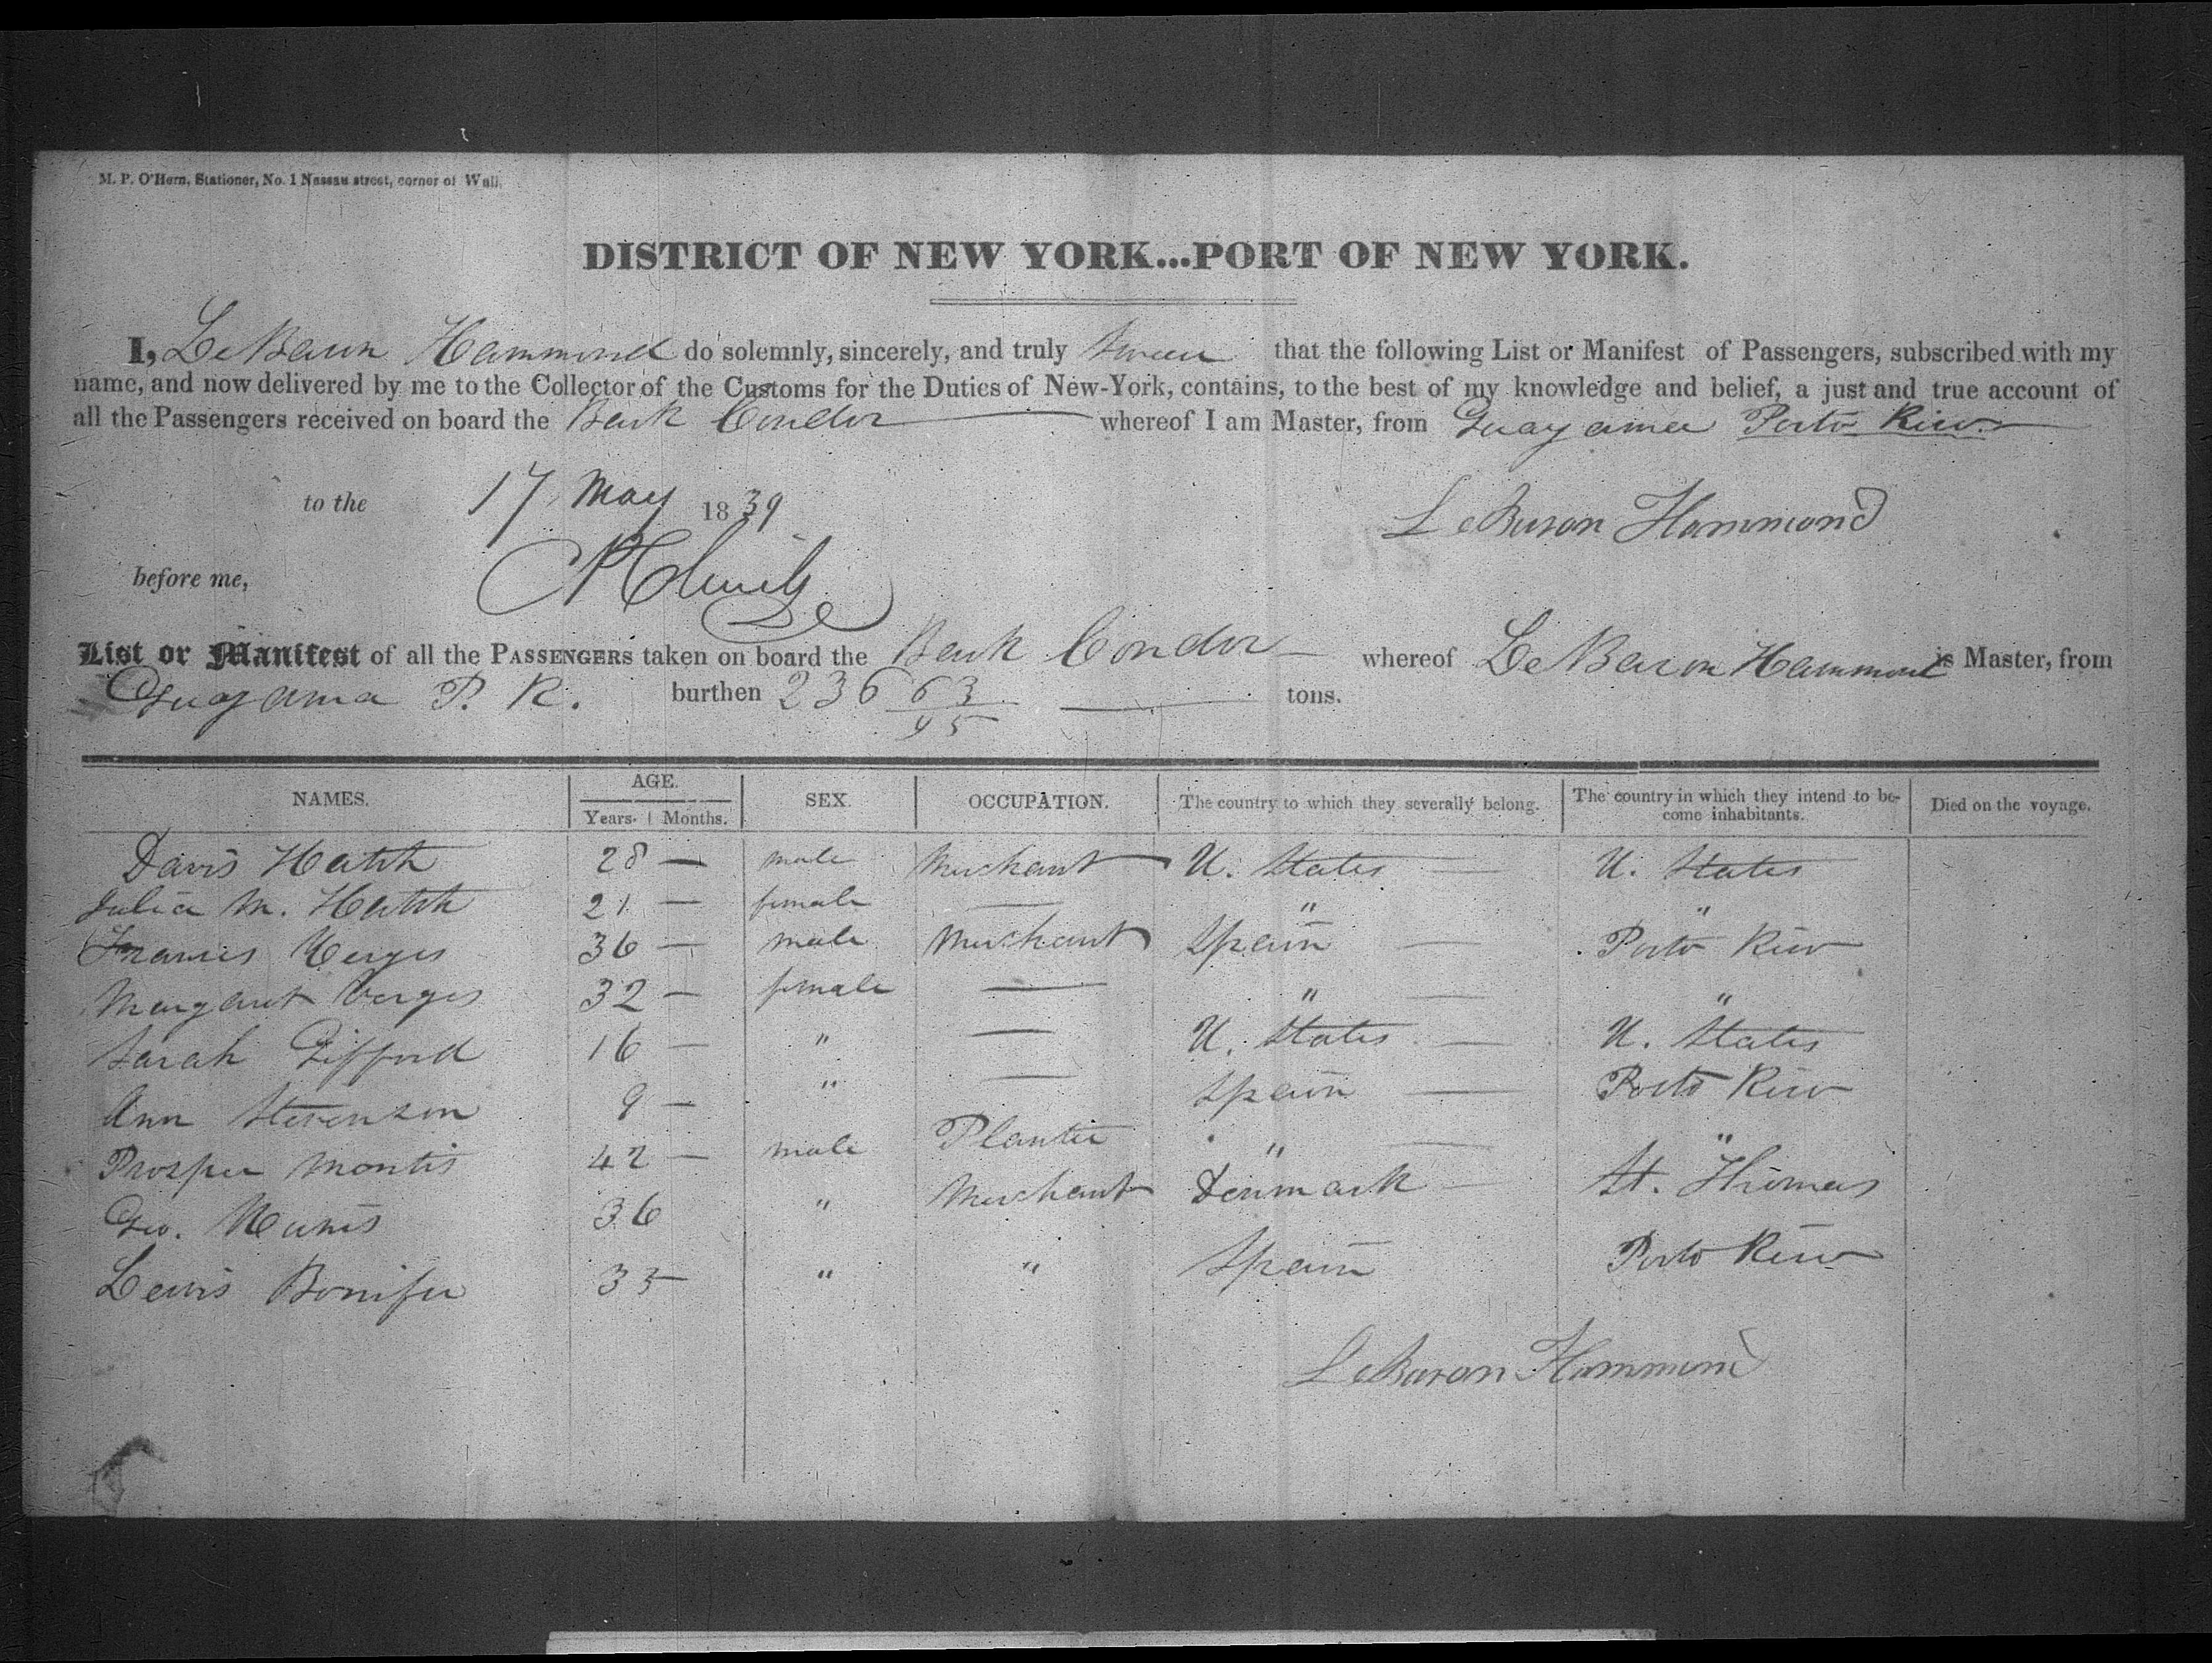 M. P. O'Hern, Stationer, No. 1 Nassau street, corner of Wall.
DISTRICT OF NEW YORK...PORT OF NEW YORK.
I, LeBaron Hammond do solemnly, sincerely, and truly swear that the following List or Manifest of Passengers, subscribed with my
name, and now delivered by me to the Collector of the Customs for the Duties of New-York, contains, to the best of my knowledge and belief, a just and true account of
all the Passengers received on board the Bark Condor whereof I am Master, from Guayama Porto Rico
to the 17 May 1839 LeBaron Hammond
before me,
List or Manifest of all the PASSENGERS taken on board the Bark Condor whereof LeBaron Hammond is Master, from
Guayama P. R. burthen 236 63/95 tons.
NAMES. AGE. Years. Months. SEX. OCCUPATION. The country to which they severally belong. The country in which they intend to become inhabitants. Died on the voyage.
Davis Hatch 28 — male Merchant U. States — U. States
Julia M. Hatch 21 — female — " "
Francis Verges 36 — male Merchant Spain — Porto Rico
Margaret Verges 32 — female — " — "
Sarah Gifford 16 — " — U. States — U. States
Ann Stevenson 9 — " — Spain — Porto Rico
Prosper Montis 42 — male Planter " — "
Geo. 36 " Merchant Denmark — St. Thomas
Lewis Bonifer 35 " " Spain Porto Rico
LeBaron Hammond